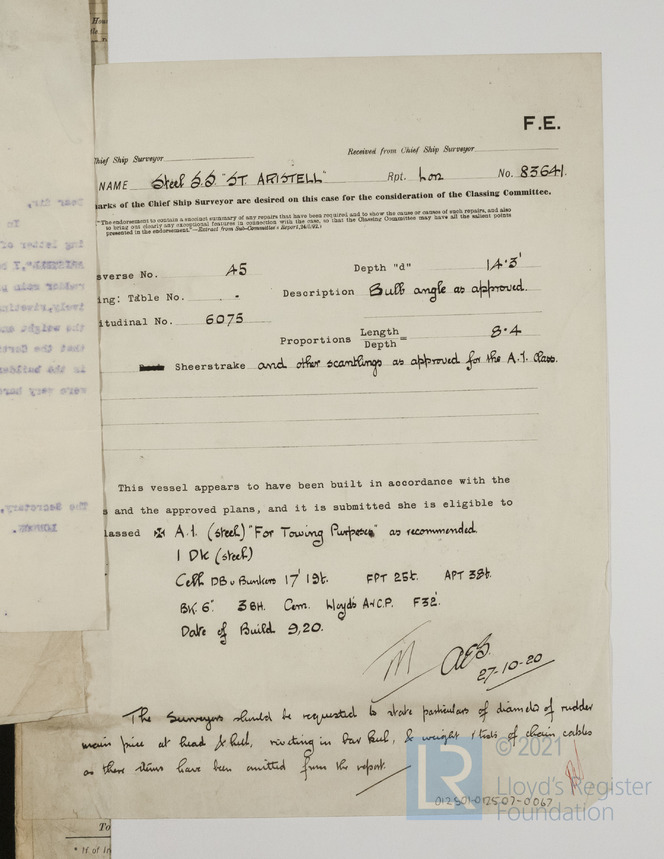 F.E.
Chief Ship Surveyor
Received from Chief Ship Surveyor
NAME Steel S.S. "ST. ARISTELL" Rpt. Lon No. 83641.
marks of the Chief Ship Surveyor are desired on this case for the consideration of the Classing Committee.
"The endorsement to contain a succinct summary of any repairs that have been required and to show the cause or causes of such repairs, and also
to bring out clearly any exceptional features in connection with the case, so that the Classing Committee may have all the salient points
presented in the endorsement."—Extract from Sub-Committee's Report,
sverse No. 45 Depth "d" 14.3'
ing: Table No. - Description Bulb angle as approved.
itudinal No. 6075
Proportions Length
Depth = 8.4
Sheerstrake and other scantlings as approved for the A.1. Class.
This vessel appears to have been built in accordance with the
s and the approved plans, and it is submitted she is eligible to
lassed ✠ A.1. (steel) "For Towing Purposes" as recommended.
1 DK (steel)
Cell DB u Bunkers 17' 19t. FPT 25t. APT 38t.
BK 6" 3BH. Cem. Lloyd's A & C.P. F32'.
Date of Build 9,20.
27-10-20
The Surveyors should be requested to state particulars of diameter of rudder
main piece at head & heel, riveting in bar keel, & weight & tests of chain cables
as these items have been omitted from the report.
© 2021
LR
Lloyd's Register
Foundation
012501-012507-0067
To
* If of
Dear Sir,
To
ing letter of
rudder main
the weight an
that the Cert
in the builder
were very
The Secretary,
LONDON.